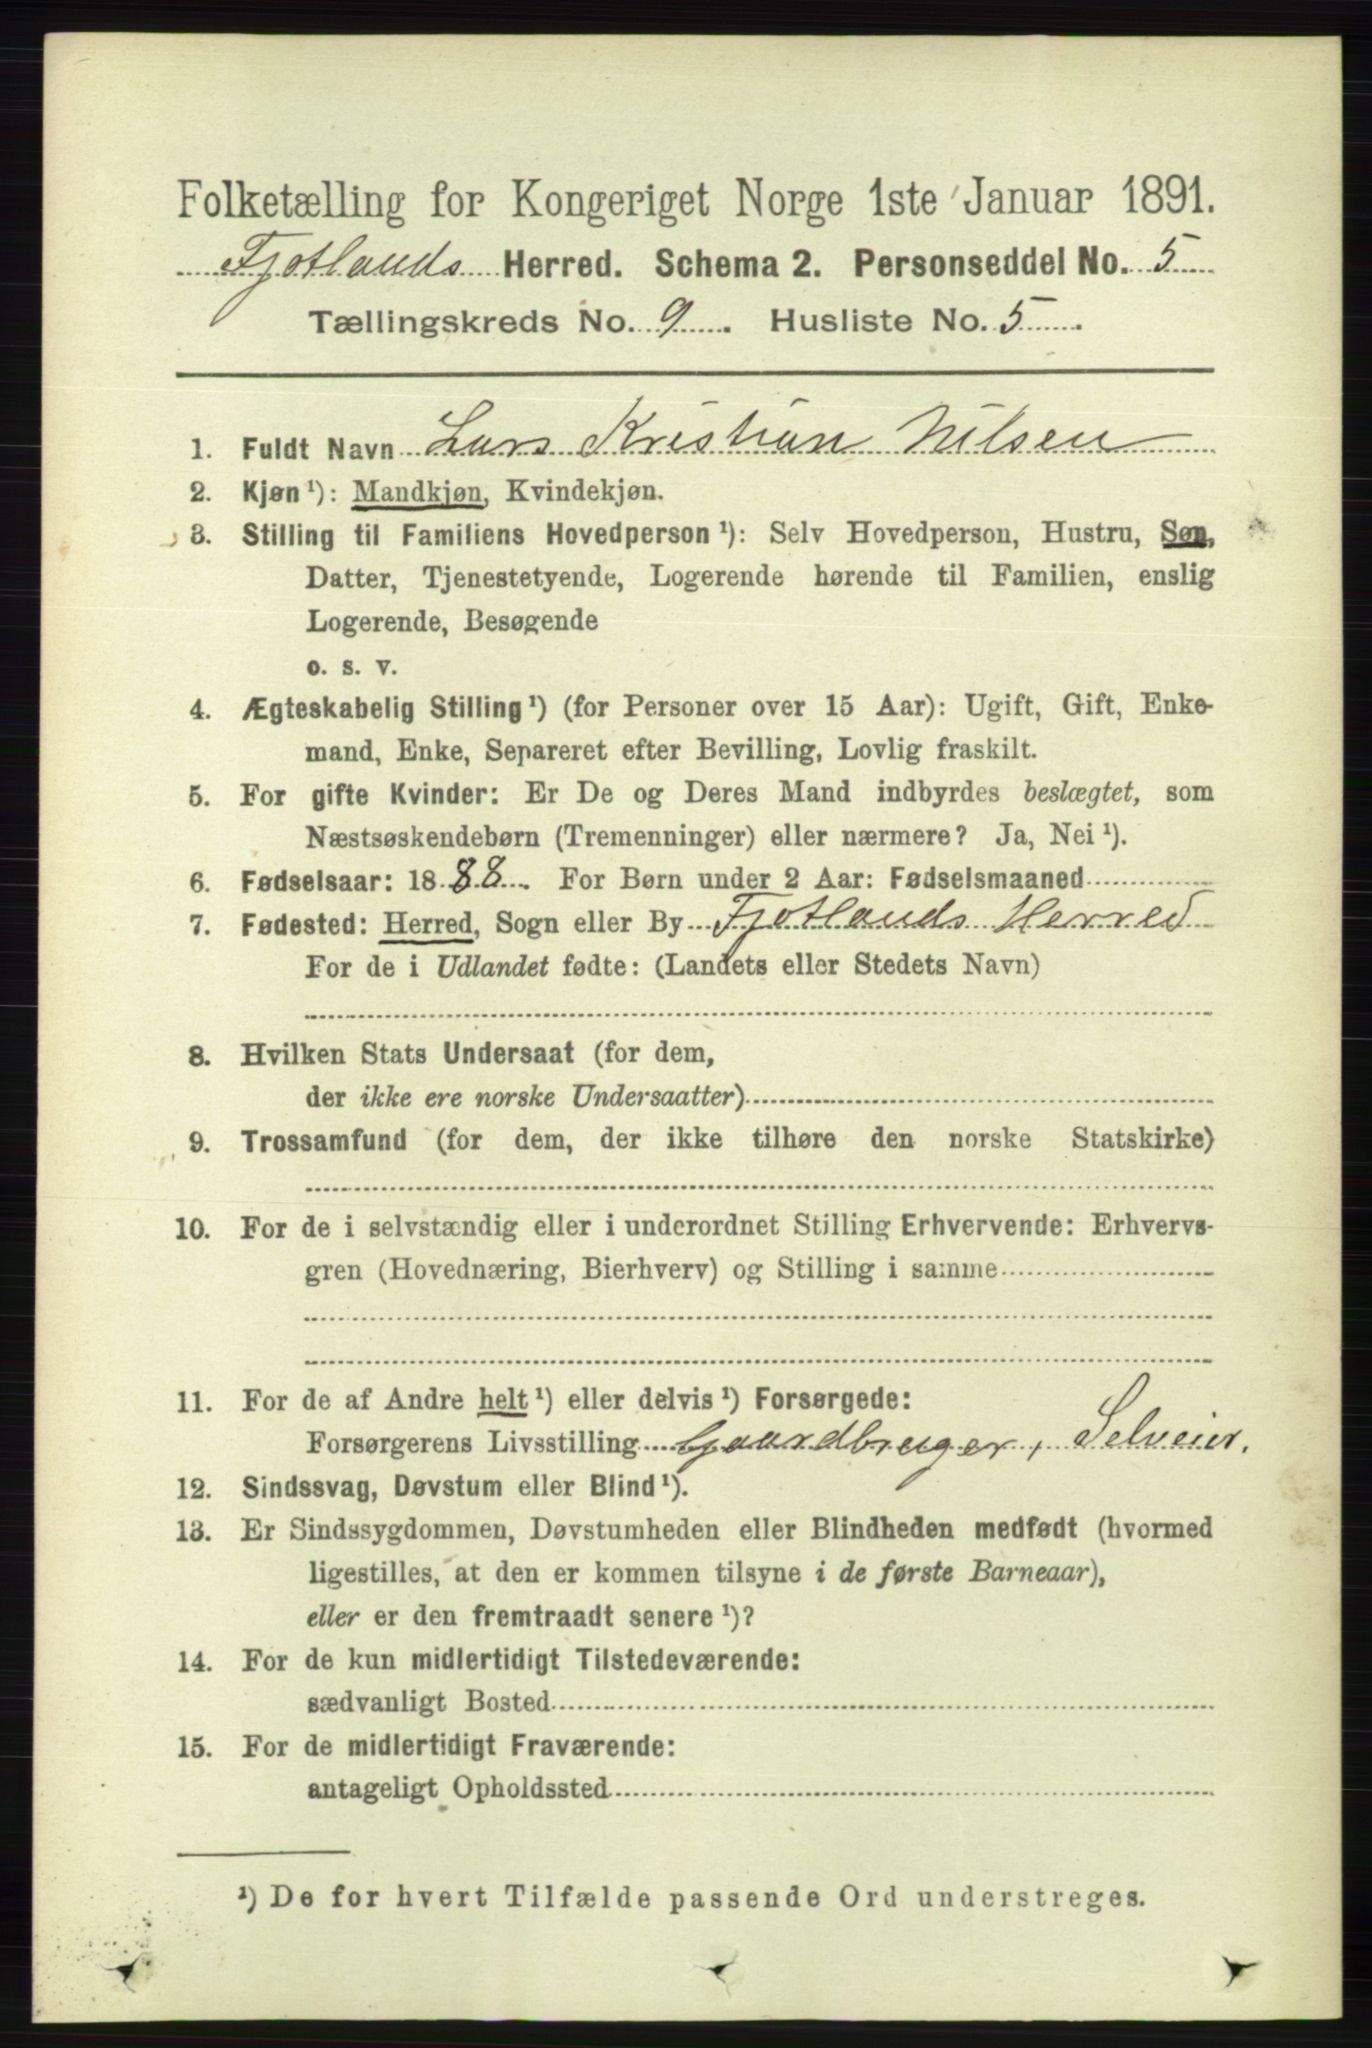 Folketælling for Kongeriget Norge 1ste Januar 1891.
Fjotlands Herred. Schema 2. Personseddel No. 5
Tællingskreds No. 9. Husliste No. 5.
1. Fuldt Navn Lars Kristian Nilsen
2. Kjøn ¹): Mandkjøn, Kvindekjøn.
3. Stilling til Familiens Hovedperson ¹): Selv Hovedperson, Hustru, Søn,
Datter, Tjenestetyende, Logerende hørende til Familien, enslig
Logerende, Besøgende
o. s. v.
4. Ægteskabelig Stilling ¹) (for Personer over 15 Aar): Ugift, Gift, Enke-
mand, Enke, Separeret efter Bevilling, Lovlig fraskilt.
5. For gifte Kvinder: Er De og Deres Mand indbyrdes beslægtet, som
Næstsøskendebørn (Tremenninger) eller nærmere? Ja, Nei ¹).
6. Fødselsaar: 1888. For Børn under 2 Aar: Fødselsmaaned
7. Fødested: Herred, Sogn eller By Fjotlands Herred
For de i Udlandet fødte: (Landets eller Stedets Navn)
8. Hvilken Stats Undersaat (for dem,
der ikke ere norske Undersaatter)
9. Trossamfund (for dem, der ikke tilhøre den norske Statskirke)
10. For de i selvstændig eller i underordnet Stilling Erhvervende: Erhvervs-
gren (Hovednæring, Bierhverv) og Stilling i samme
11. For de af Andre helt ¹) eller delvis ¹) Forsørgede:
Forsørgerens Livsstilling Gaardbruger, Selveier.
12. Sindssvag, Døvstum eller Blind ¹).
13. Er Sindssygdommen, Døvstumheden eller Blindheden medfødt (hvormed
ligestilles, at den er kommen tilsyne i de første Barneaar),
eller er den fremtraadt senere ¹)?
14. For de kun midlertidigt Tilstedeværende:
sædvanligt Bosted
15. For de midlertidigt Fraværende:
antageligt Opholdssted
¹) De for hvert Tilfælde passende Ord understreges.